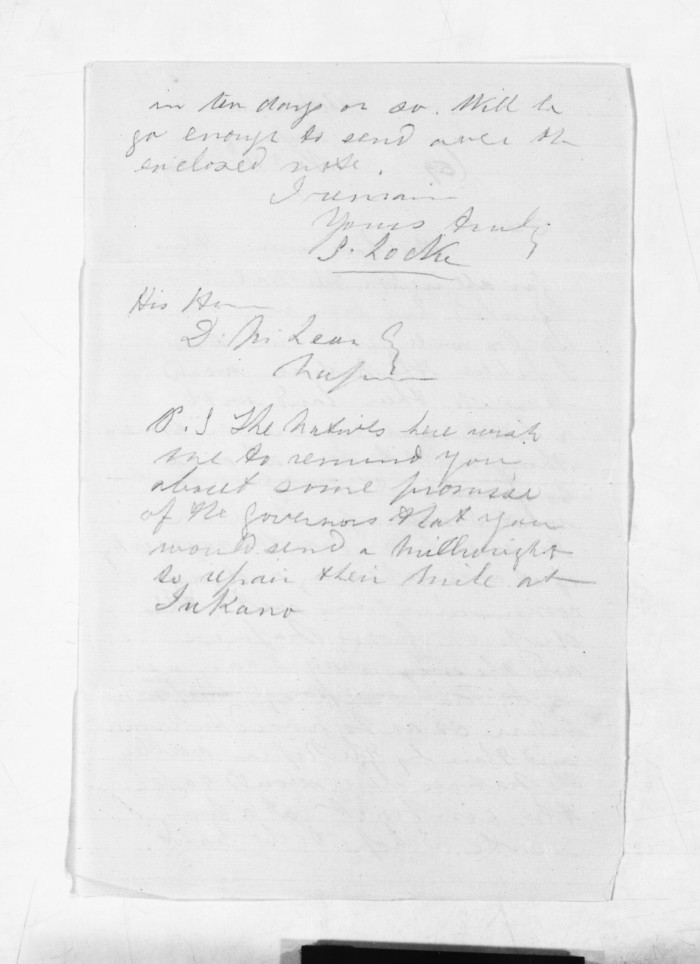 in ten days or so. Will be
go enough to send over the
enclosed note.
I remain
Yours truly
S. Locke
His Honor
D. McLean Esq
Napier
P.S The Natives here wish
me to remind you
about some promise
of the Governors that you
would send a Millwright
to repair their Mill at